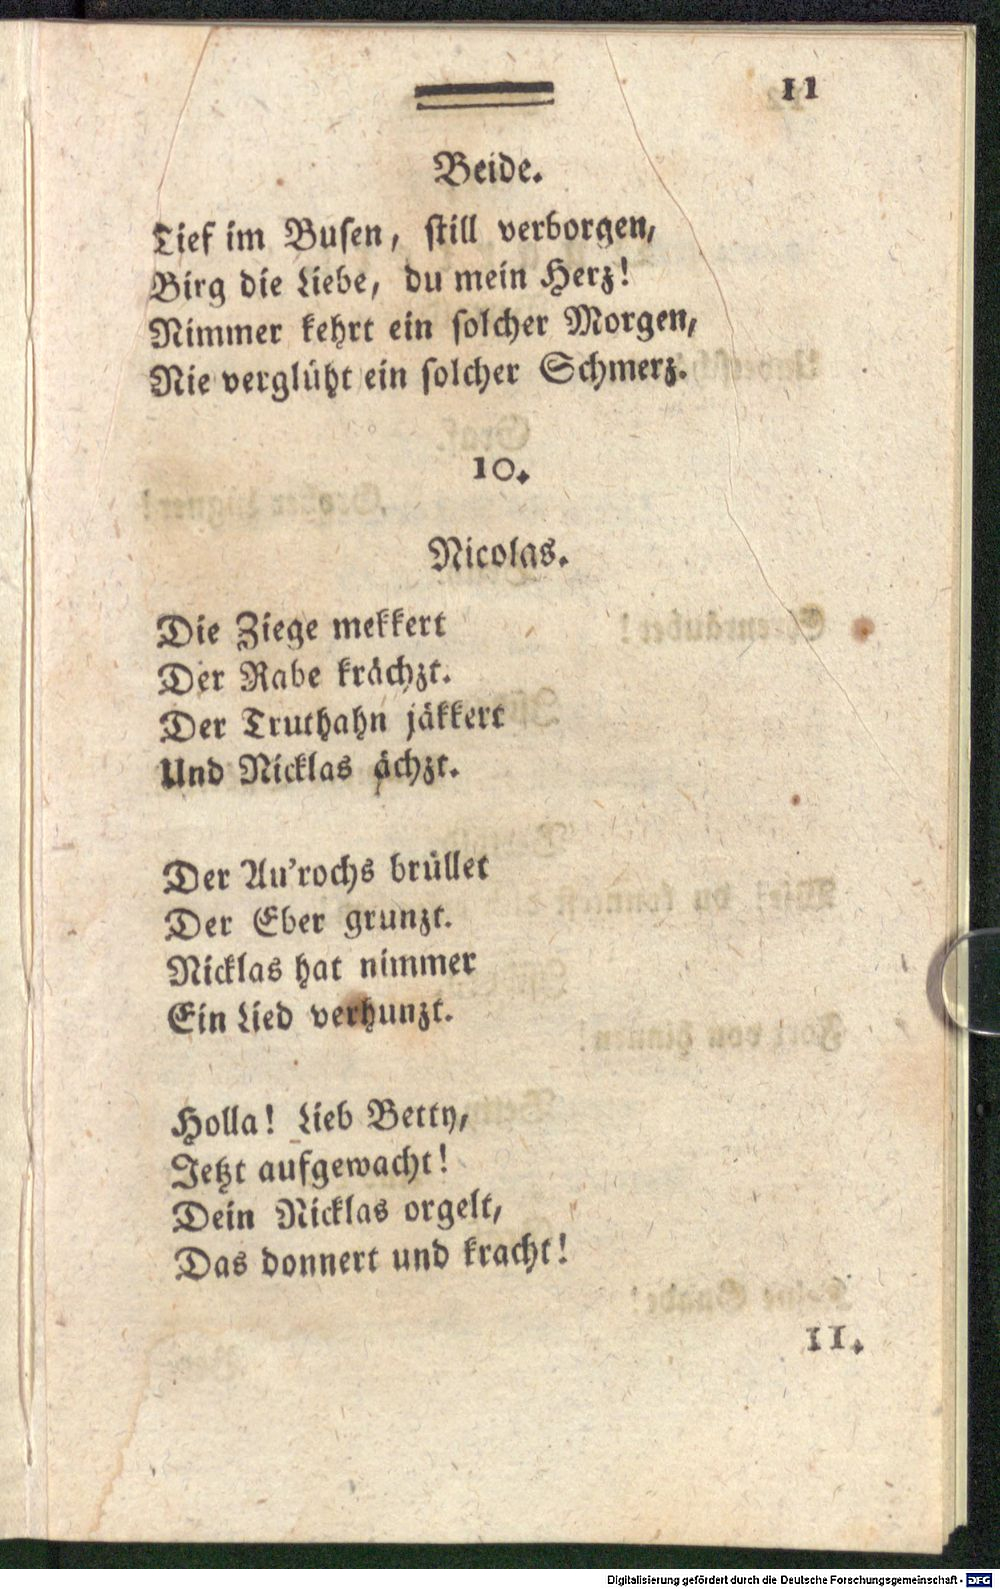 11
Beide.
Tief im Busen, still verborgen,
Birg die Liebe, du mein Herz!
Nimmer kehrt ein solcher Morgen,
Nie verglüht ein solcher Schmerz.
10.
Nicolas.
Die Ziege mekkert
Der Rabe krächzt.
Der Truthahn jäkkert
Und Nicklas ächzt.
Der Au'rochs brüllet
Der Eber grunzt.
Nicklas hat nimmer
Ein Lied verhunzt.
Holla! Lieb Betty,
Jetzt aufgewacht!
Dein Nicklas orgelt,
Das donnert und kracht!
11.
Digitalisierung gefördert durch die Deutsche Forschungsgemeinschaft - DFG